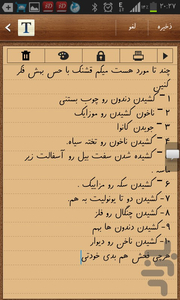 ۲۰:۲۷
ذخیره
لغو
T
چند تا مورد هست میگم قشنگ با حس بهش فکر
کنین
۱- کشیدن دندون رو چوب بستنی
۲- ناخون کشیدن رو موزاییک
۳- جویدن کاموا
۴- کشیدن ناخون رو تخته سیاه.
۵- کشیده شدن سفت بیل رو آسفالت زبر
.
۶- کشیدن سکه رو موزاییک .
۷- کشیدن دو تا یونولیت به هم.
۸- کشیدن چنگال رو فلز
۹- کشیدن دندون ها بهم
۱۰- کشیدن ناخن رو دیوار
هرچی فحش هم بدی خودتی